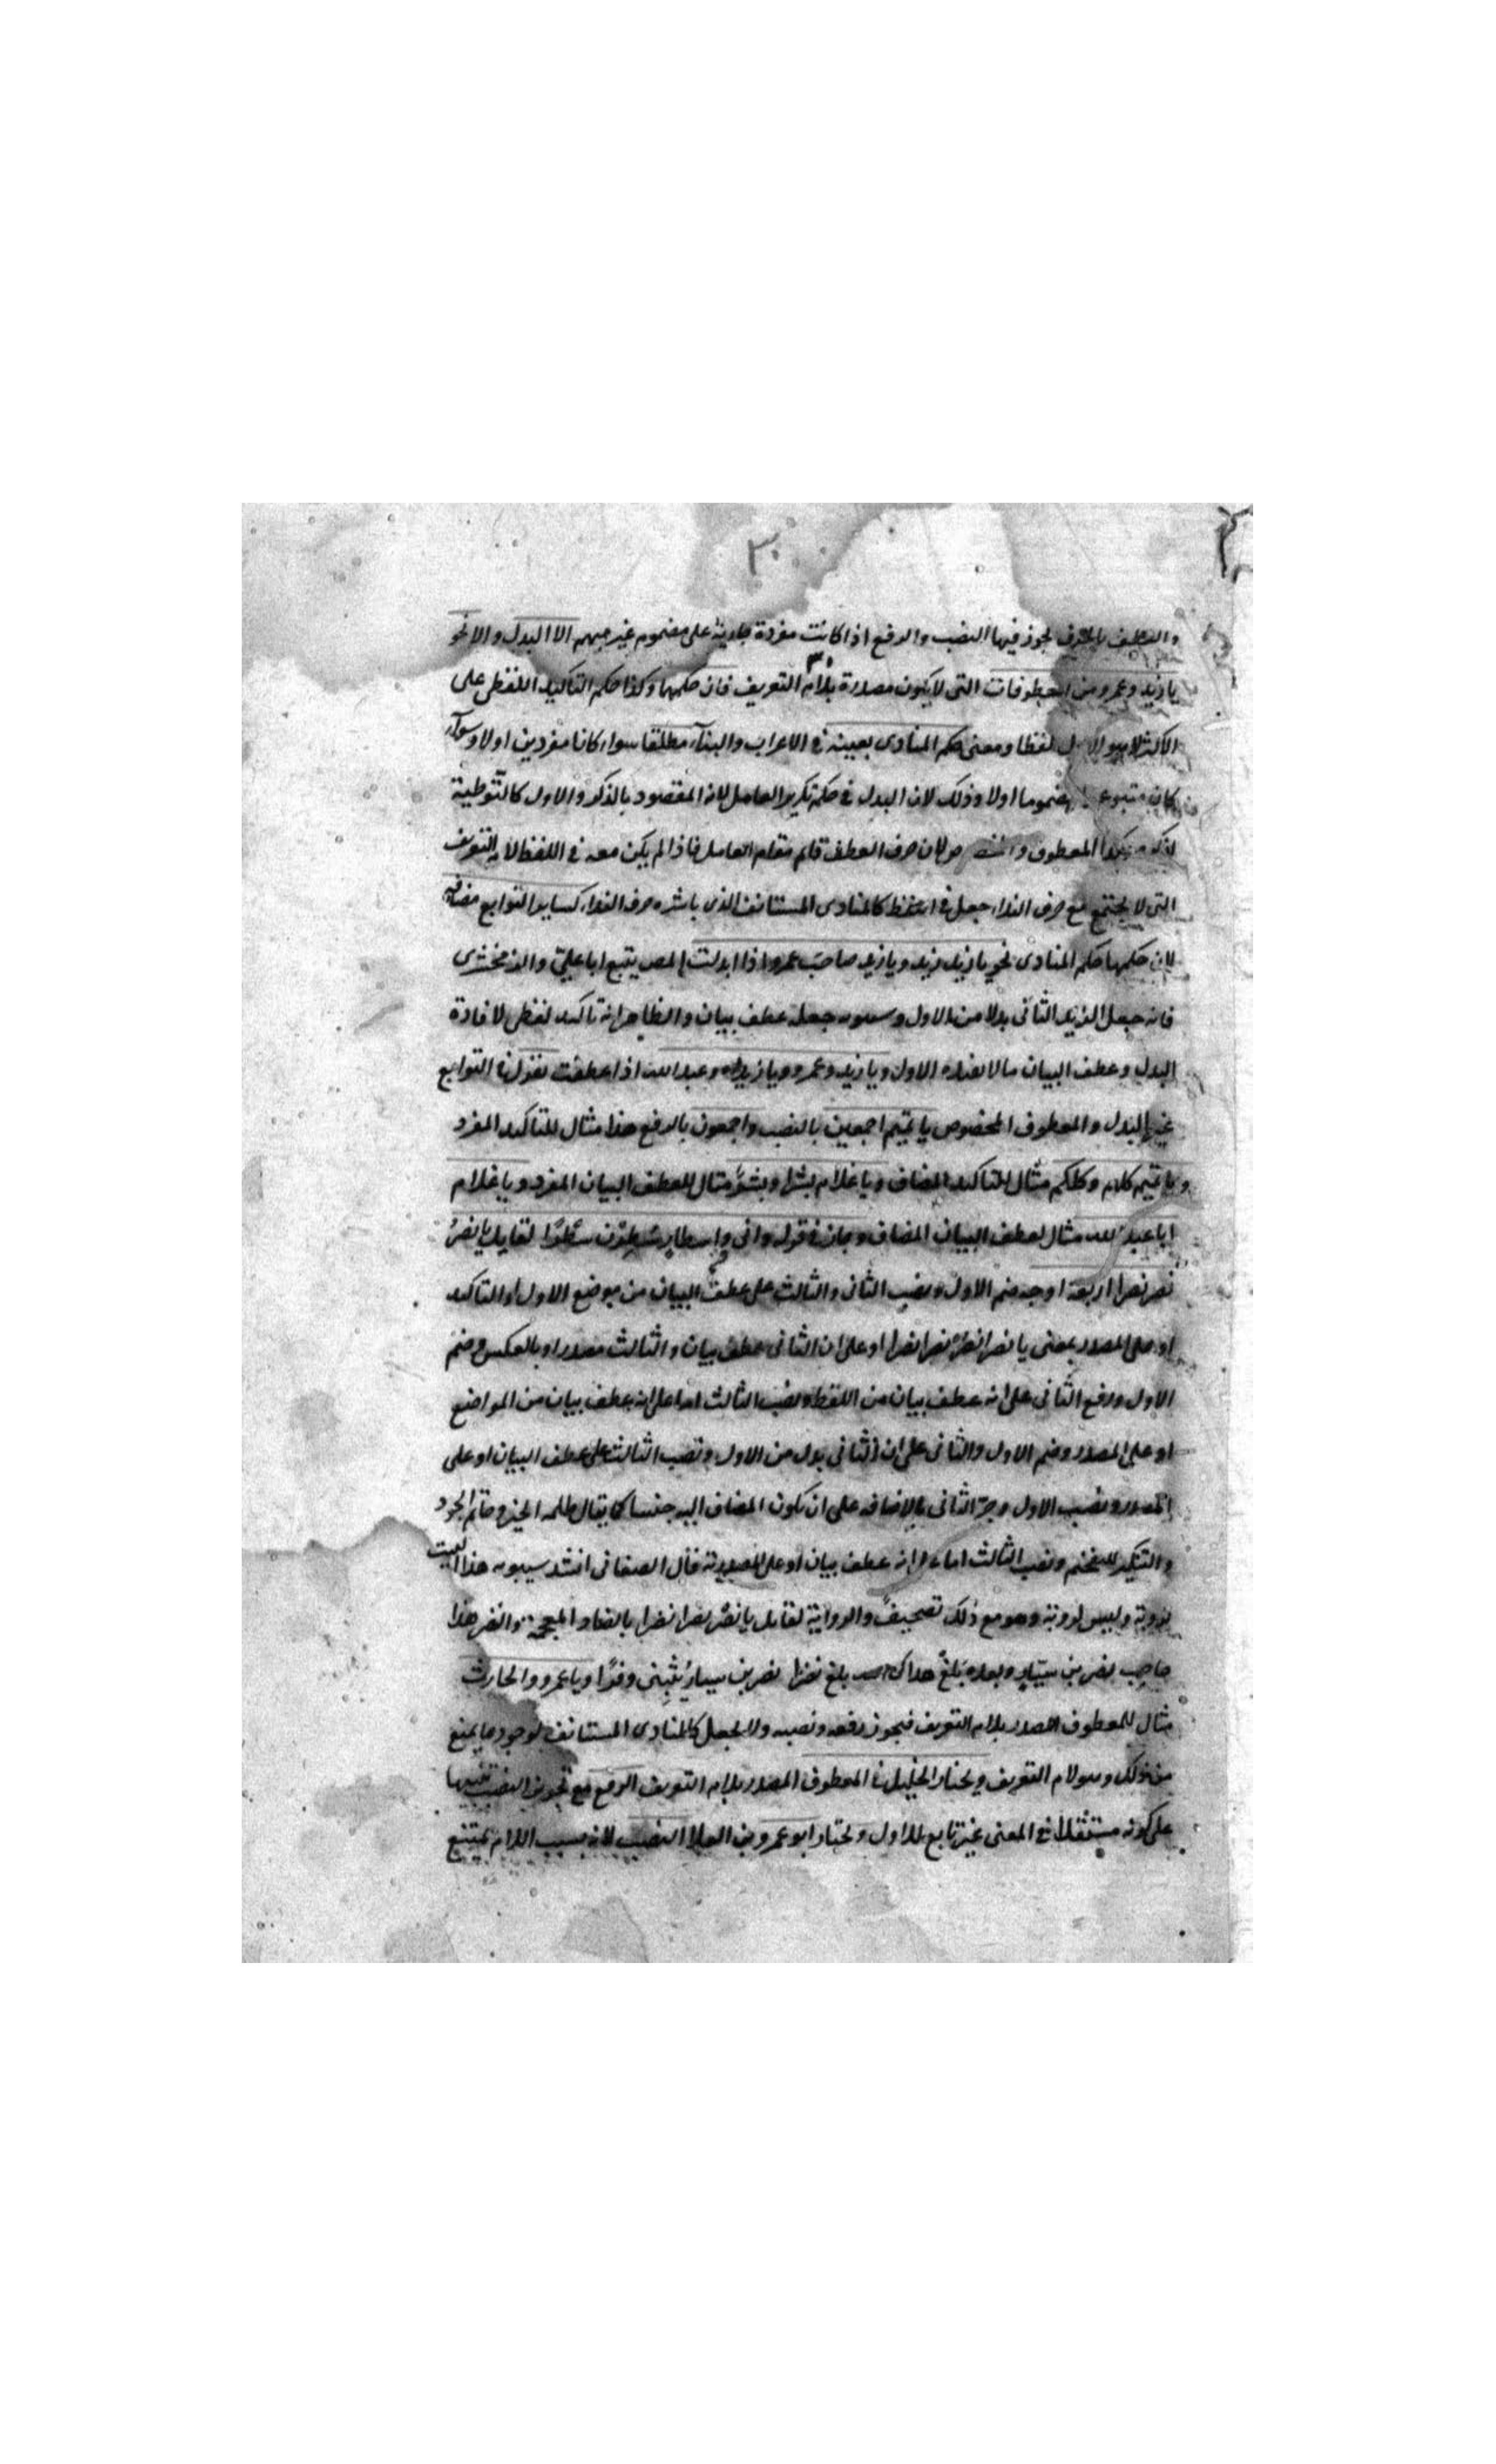 ٣٠
والعطف بالحرف يجوز فيها النصب والرفع اذا كانت مفردة جارية على مضموم غير مبهم الا البدل والا نحو
يا زيد وعمرو من المعطوفات التى لا يكون مصدرة بلام التعريف فان حكمهما وكذا حكم التاكيد اللفظى على
الاكثر لانه هو الاول لفظا ومعنى حكم المنادى بعينه فى الاعراب والبناء مطلقا سواء كانا مفردين اولا وسواء
كان متبوعـ مضموما اولا وذلك لان البدل فى حكم تكرير العامل لانه المقصود بالذكر والاول كالتوطية
لذكره وكذا المعطوف ولان حرف العطف قايم مقام العامل فاذا لم يكن معه فى اللفظ لام التعريف
التى لا يجتمع مع حرف النداء جعل فى اللفظ كالمنادى المستانف الذى باشره حرف النداء كساير التوابع مضافة
لان حكمها حكم المنادى نحو يا زيد زيد ويا زيد صاحب عمرو اذا ابدلت المص يتبع ابا على والزمخشرى
فانه جعل الزيد الثانى بدلا من الاول وسيبويه جعله عطف بيان والظاهر انه تاكيد لفظى لافادة
البدل وعطف البيان مالا يفيده الاول ويا زيد وعمرو ويا زيد وعبد الله اذا عطفت تقول فى التوابع
غير البدل والمعطوف المخصوص يا تميم اجمعين بالنصب واجمعون بالرفع هذا مثال للتاكيد المفرد
ويا تميم كلهم وكلكم مثال للتاكيد المضاف ويا غلام بشرا وبشرٌ مثال للعطف البيان المفرد ويا غلام
ابا عبد الله مثال لعطف البيان المضاف وجاز فى قوله وانى واسطار سطرن سطرا لقايل يا نصرُ
نصر نصرا اربعة اوجه ضم الاول ونصب الثانى والثالث على عطف البيان من موضع الاول او التاكيد
او على المصدر بمعنى يا نصر انصر نصرا نصرا او على ان الثانى عطف بيان والثالث مصدر او بالعكس وضم
الاول ورفع الثانى على انه عطف بيان من اللفظ ونصب الثالث اما على انه عطف بيان من المواضع
او على المصدر وضم الاول والثانى على ان الثانى بدل من الاول ونصب الثالث على عطف البيان او على
المصدر ونصب الاول وجر الثانى بالاضافه على ان تكون المضاف اليه جنسا كما يقال طلحه الخير وحاتم الجود
والتنكير للتفخيم ونصب الثالث اما على انه عطف بيان او على المصدرية قال الصغانى انشد سيبويه هذا البيت
لروبة وليس لروبة وهو مع ذلك تصحيف والرواية لقايل يا نضر نضرا نضرا بالضاد المعجمة والنضر هذا
حاجب نصر بن سيار وبعده بلغ هداك الله بلغ نضرا نصر بن سيار يثبنى وفرا ويا عمرو والحارث
مثال للمعطوف المصدر بلام التعريف فيجوز رفعه ونصبه ولا يجعل كالمنادى المستانف لوجود ما يمنع
من ذلك وهو لام التعريف ويختار الخليل فى المعطوف المصدر بلام التعريف الرفع مع تجويز النصب تنبيها
على كونه مستقلا فى المعنى غير تابع للاول ويختار ابو عمرو بن العلا النصب لانه بسبب اللام يمتنع